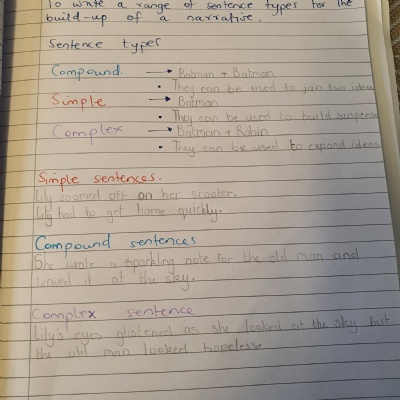 To write a range of sentence types for the
build-up of a narrative.
Sentence types
Compound → Batman + Batman
• They can be used to join two ideas
Simple → Batman
• They can be used to build suspense
Complex → Batman + Robin
• They can be used to expand ideas
Simple sentences.
Lily zoomed off on her scooter.
Lily had to get home quickly.
Compound sentences
She wrote a sparkling note for the old man and
it at the sky.
Complex sentence
Lily's eyes glistened as she looked at the sky but
the old man looked hopeless